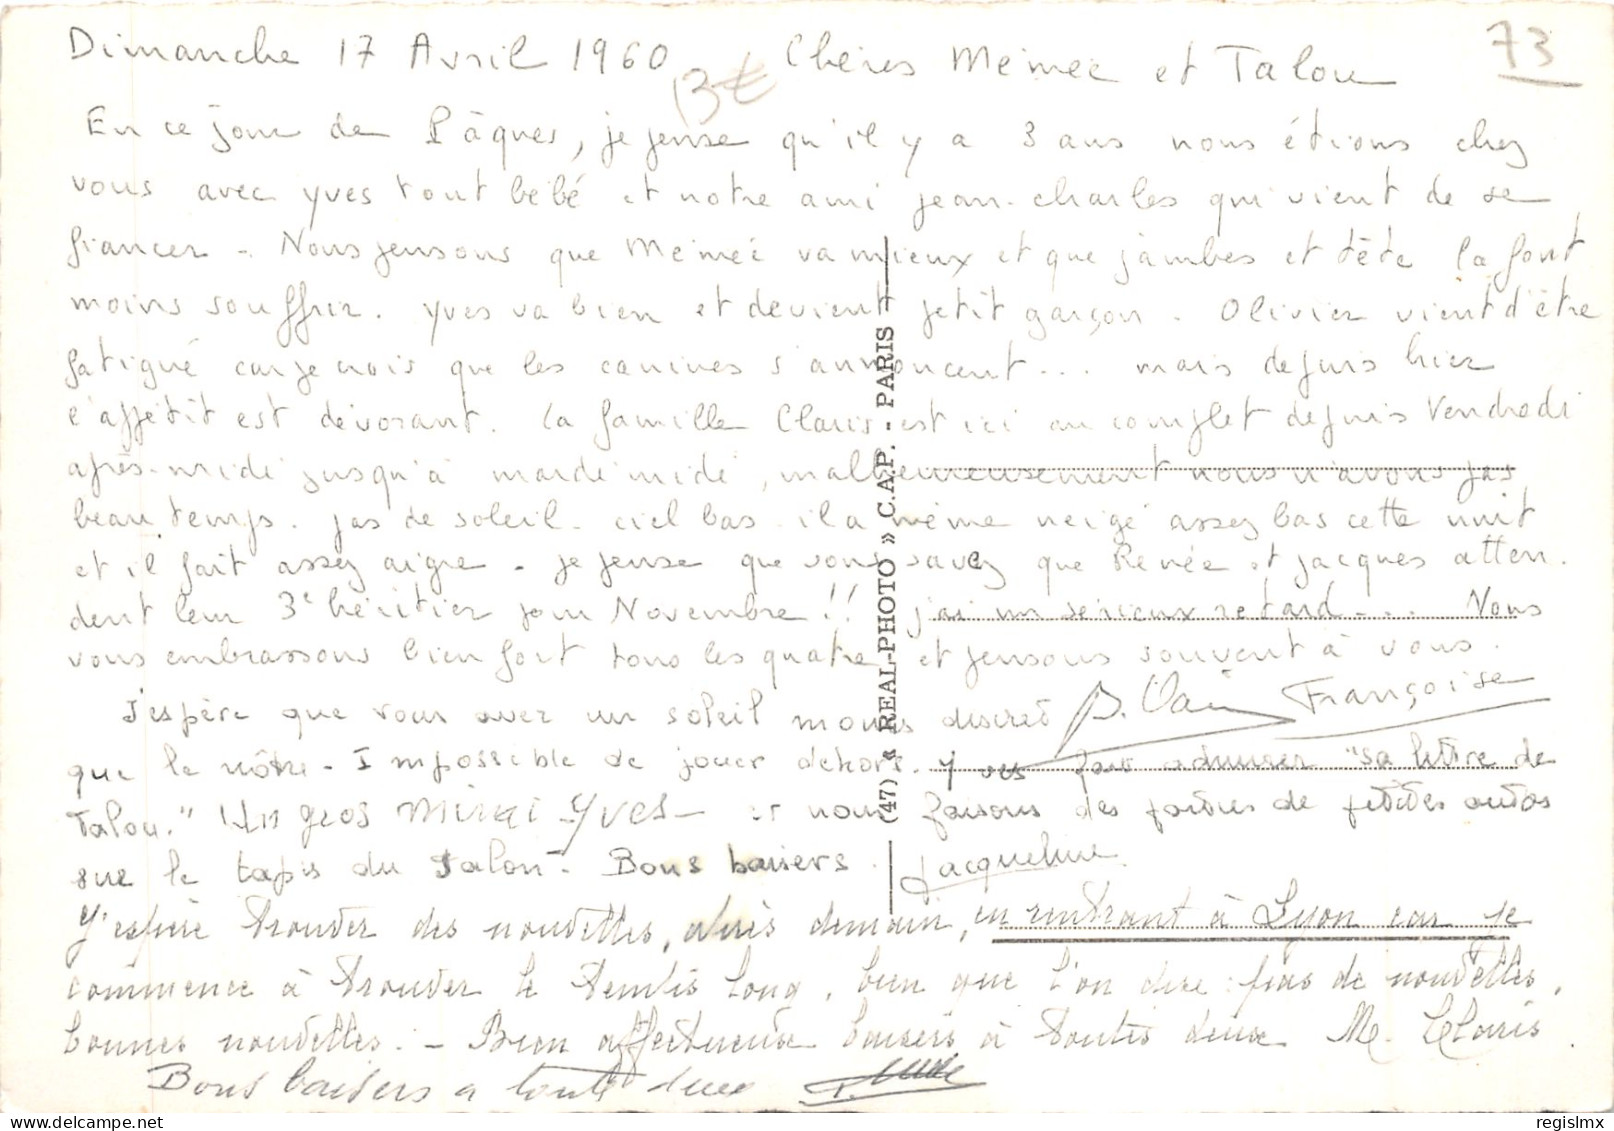 Dimanche 17 Avril 1960 Chères Mémée et Talou
73
13€
En ce jour de Pâques, je pense qu'il y a 3 ans nous étions chez
vous avec Yves tout bébé et notre ami Jean-Charles qui vient de se
fiancer - Nous pensons que Mémée va mieux et que jambes et tête la font
moins souffrir. Yves va bien et devient petit garçon. Olivier vient d'être
fatigué car je crois que les canines s'annoncent... mais depuis hier
l'appétit est dévorant. la famille Claris est ici au complet depuis Vendredi
après-midi jusqu'à mardi midi, malheureusement nous n'avons pas
beau temps. pas de soleil - ciel bas - il a même neigé assez bas cette nuit
et il fait assez aigre - je pense que vous savez que Renée et Jacques atten.
dent leur 3e héritier pour Novembre !! j'ai un sérieux retard.... Nous
vous embrassons bien fort tous les quatre et pensons souvent à vous.
Françoise
J'espère que vous avez un soleil moins discret
que le nôtre - Impossible de jouer dehors. Yves fait admirer "sa lettre de
Talou." Un gros Mimi Yves - et nous faisons des parties de petites autos
sur le tapis du salon - Bons baisers. Jacqueline
J'espère trouver des nouvelles, après demain, en rentrant à Lyon car je
commence à trouver le temps long, bien que l'on dise : pas de nouvelles,
bonnes nouvelles. - Bien affectueux baisers à toutes deux M. Claris
Bons baisers a toute deux
(47) « REAL-PHOTO » C.A.P. - PARIS
regislmx